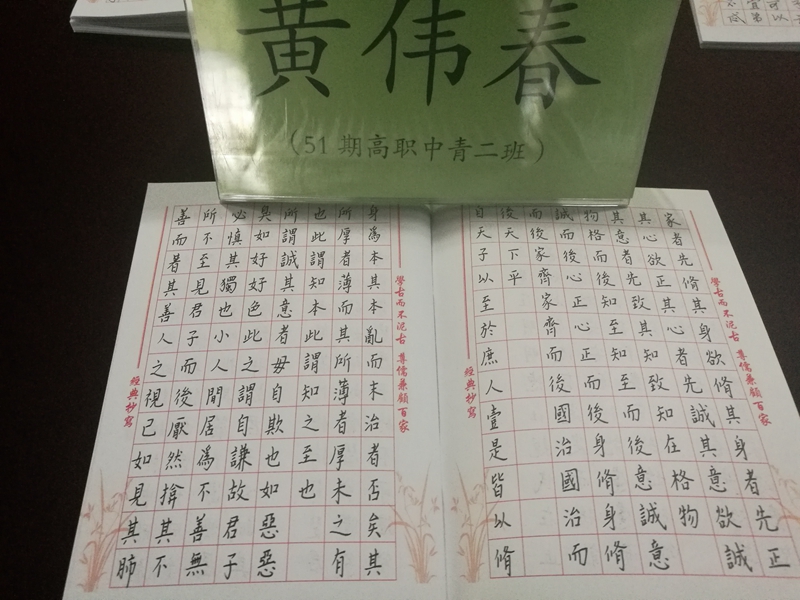 黄伟春
(51期高职中青二班)
家者先脩其身欲脩其身者先正
其心欲正其心者先誠其意欲誠
其意者先致其知致知在格物
物格而后知至知至而後意誠意
誠而后心正心正而後身脩身脩
而後家齊家齊而後國治國治而
後天下平
自天子以至於庶人壹是皆以脩
學古而不泥古 尊儒兼顧百家
經典抄寫
身為本其本亂而末治者否矣其
所厚者薄而其所薄者厚未之有
也此謂知本此謂知之至也
所謂誠其意者毋自欺也如惡惡
臭如好好色此之謂自謙故君子
必慎其獨也小人閒居為不善無
所不至見君子而後厭然揜其不
善而著其善人之視己如見其肺
學古而不泥古 尊儒兼顧百家
經典抄寫